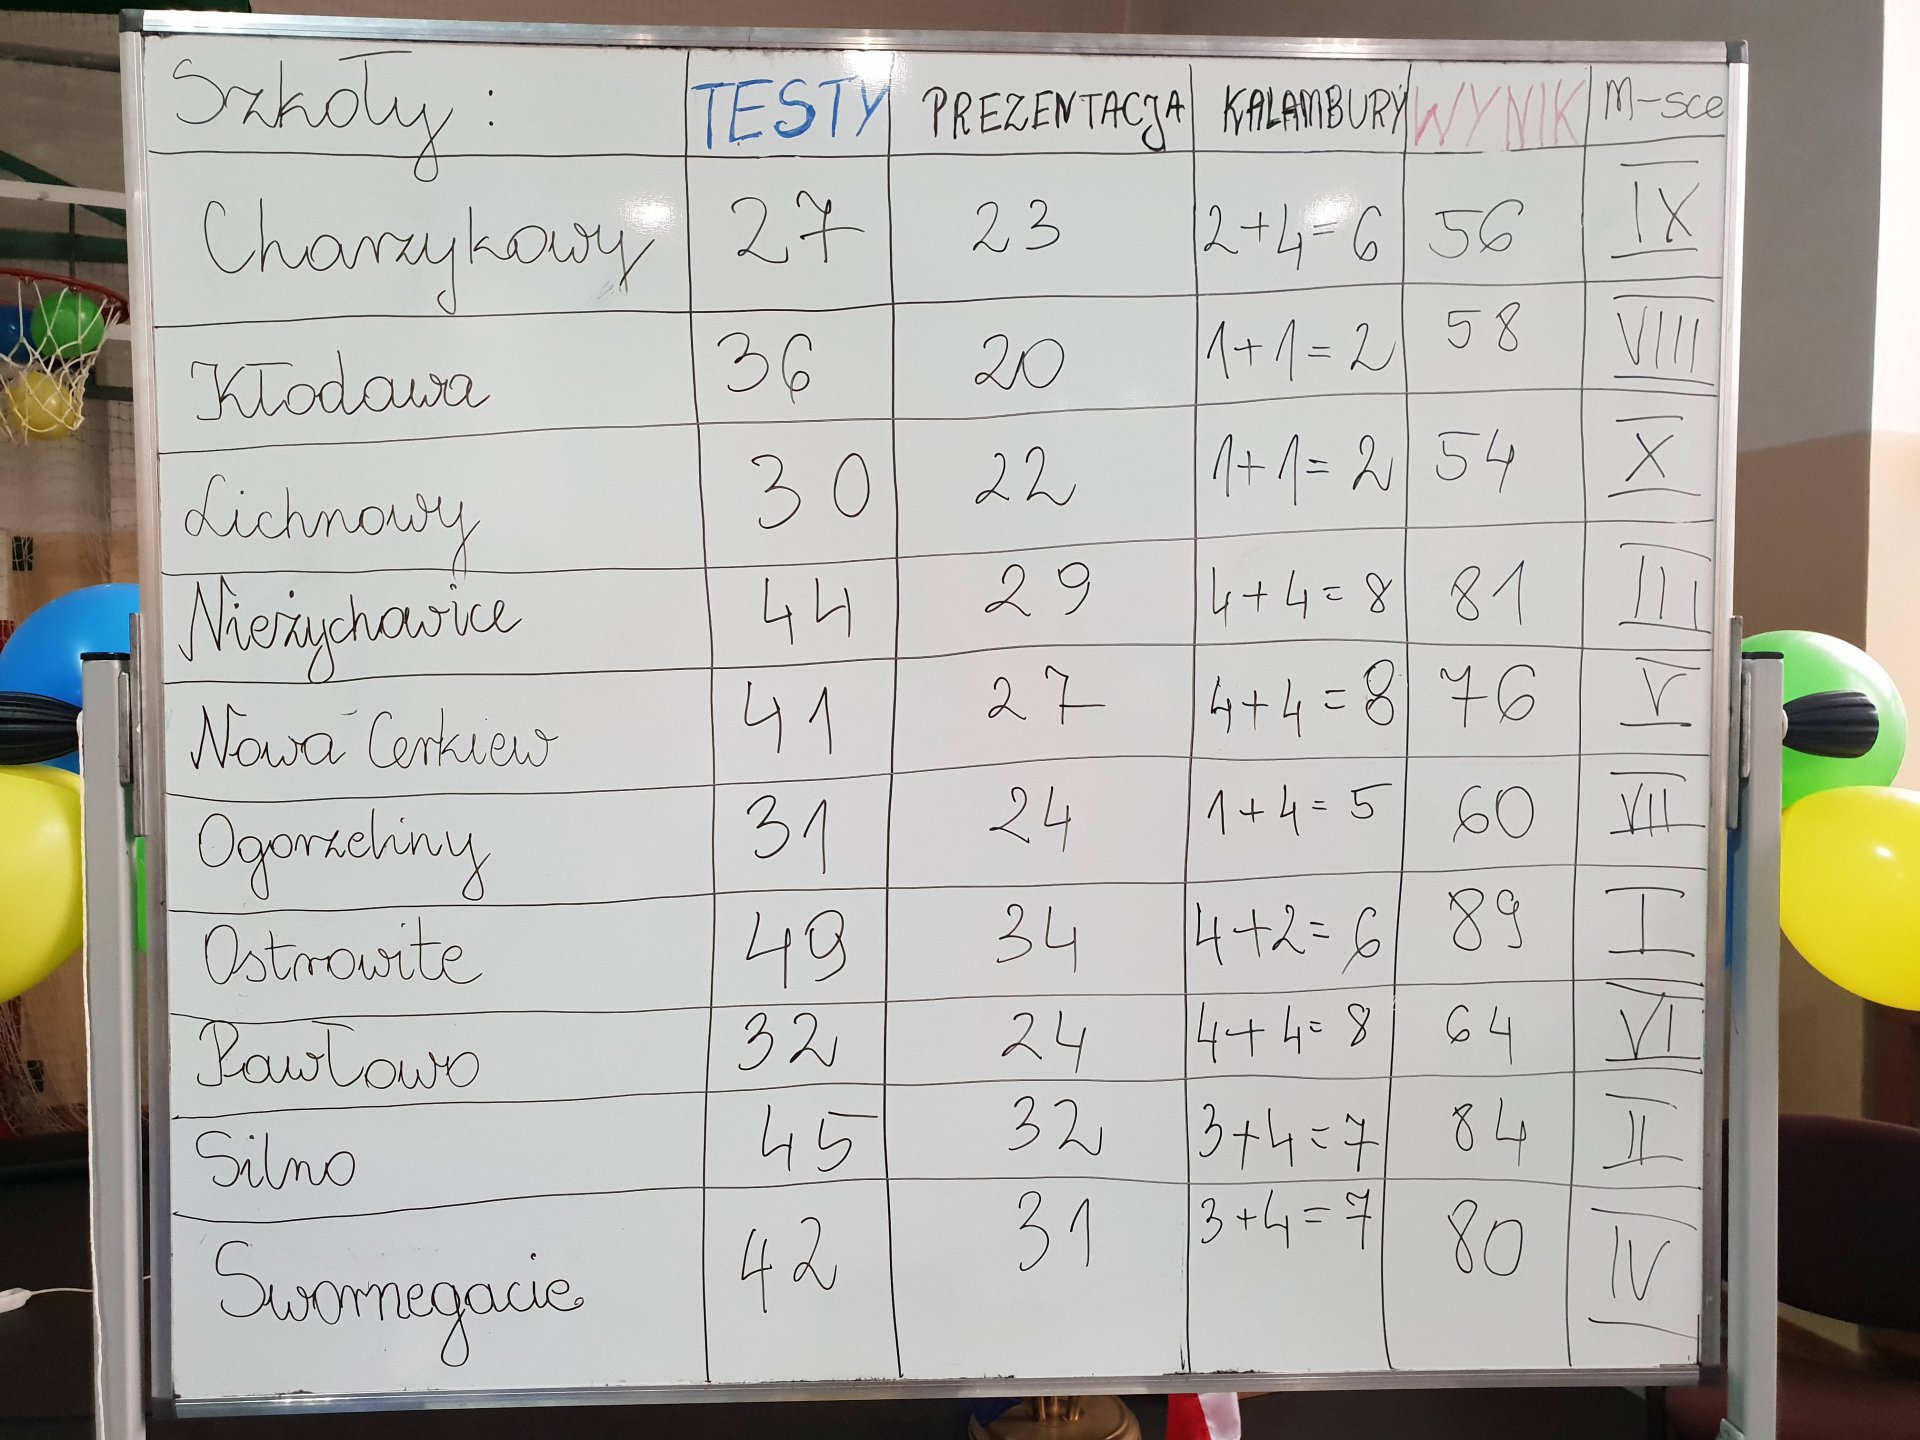 Szkoły: TESTY PREZENTACJA KALAMBURY WYNIK M-sce
Charzykowy 27 23 2+4=6 56 IX
Kłodawa 36 20 1+1=2 58 VIII
Lichnowy 30 22 1+1=2 54 X
Nieżychowice 44 29 4+4=8 81 III
Nowa Cerkiew 41 27 4+4=8 76 V
Ogorzeliny 31 24 1+4=5 60 VII
Ostrowite 49 34 4+2=6 89 I
Pawłowo 32 24 4+4=8 64 VI
Silno 45 32 3+4=7 84 II
Swornegacie 42 31 3+4=7 80 IV